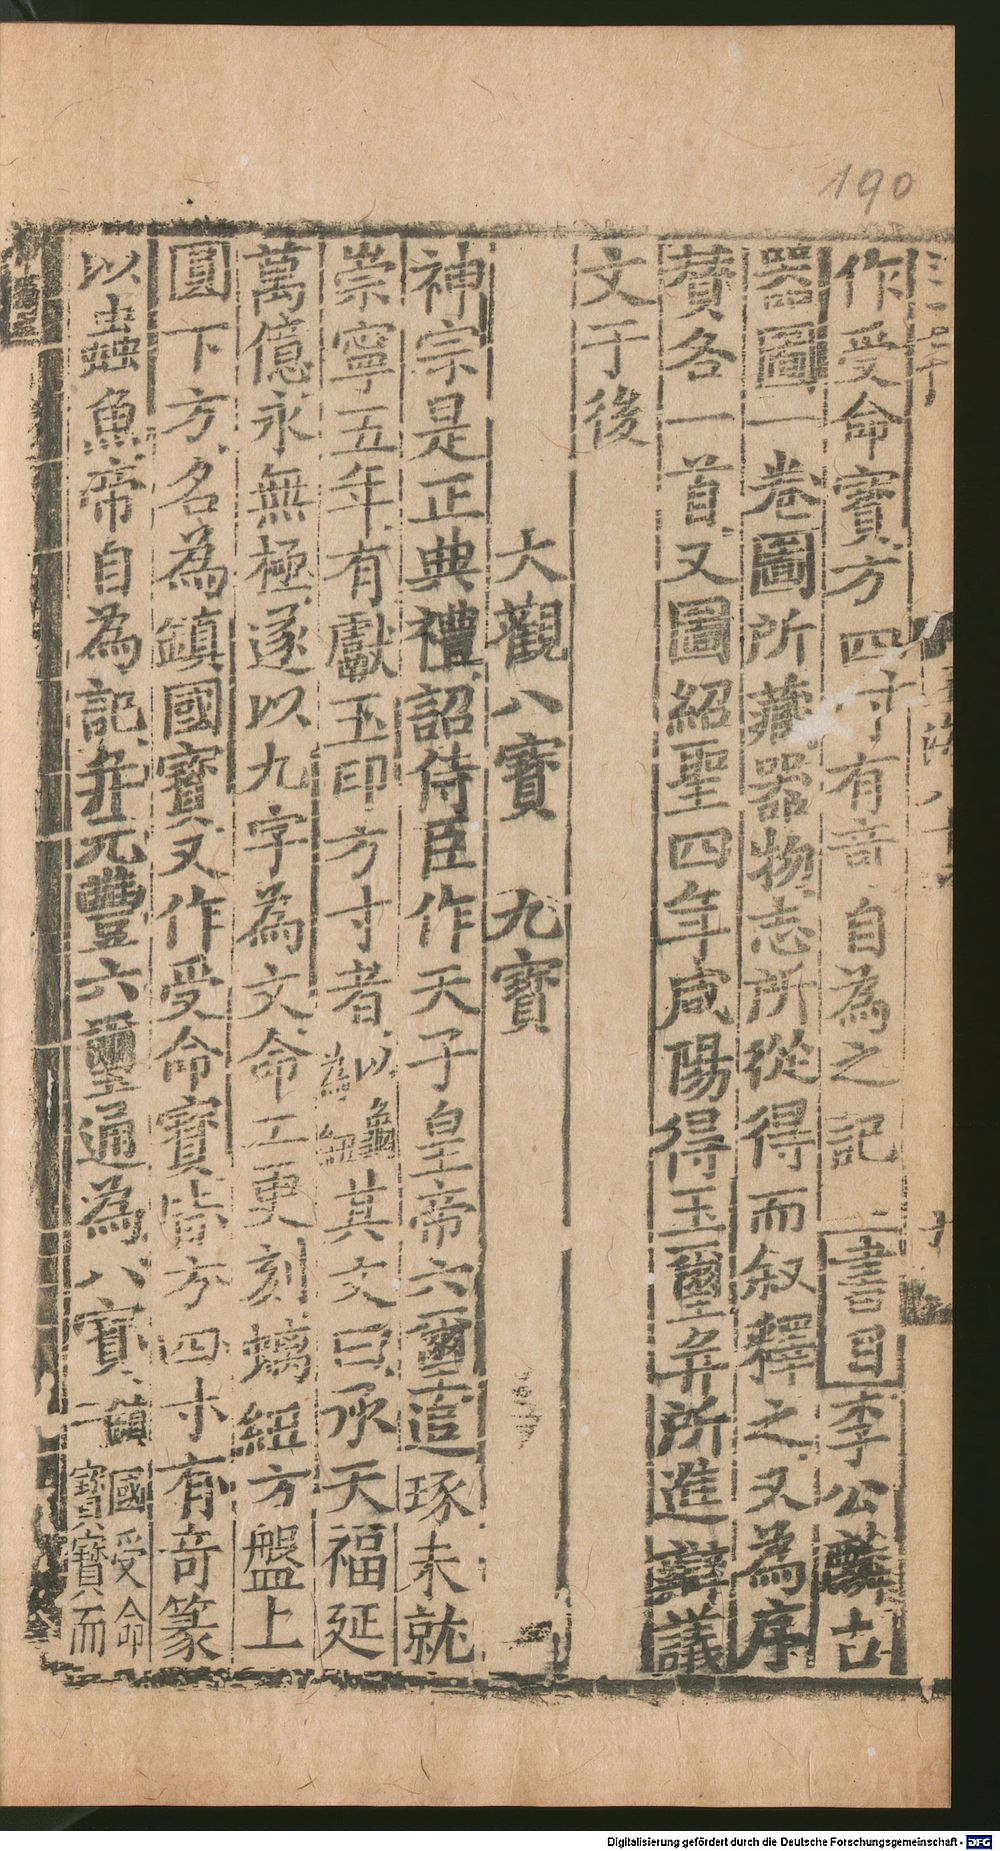 190
作受命寶方四寸有竒自為之記一書目李公麟古
器圖一卷圖所藏器物志所從得而叙釋之又為序
賛各一首又圖紹聖四年咸陽得玉璽并所進辭議
文于後
大觀八寶　九寶
神宗是正典禮詔侍臣作天子皇帝六璽追琢未就
崇寧五年有獻玉印方寸者以龜為鈕其文曰承天福延
萬億永無極遂以九字為文命工更刻螭紐方盤上
圓下方名為鎮國寶又作受命寶皆方四寸有竒篆
以蟲魚帝自為記并元豐六璽通為八寶鎮國受命二寶寶而
Digitalisierung gefördert durch die Deutsche Forschungsgemeinschaft - DFG